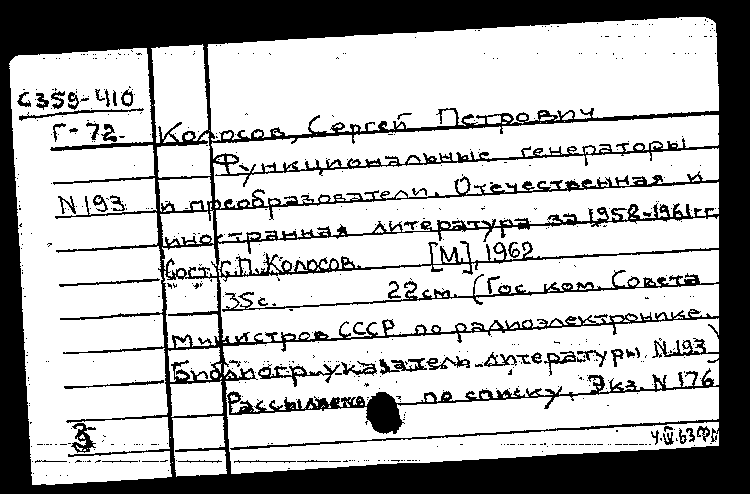 С359-410
Г-72.
N 193
Колосов, Сергей Петрович
Функциональные генераторы
и преобразователи. Отечественная и
иностранная литература за 1958-1961гг.
Сост. С.П. Колосов. [М.], 1962.
35с. 22см. (Гос. ком. Совета
Министров СССР по радиоэлектронике.
Библиогр. указатель литературы N 193)
Рассылается по списку. Экз. N 176